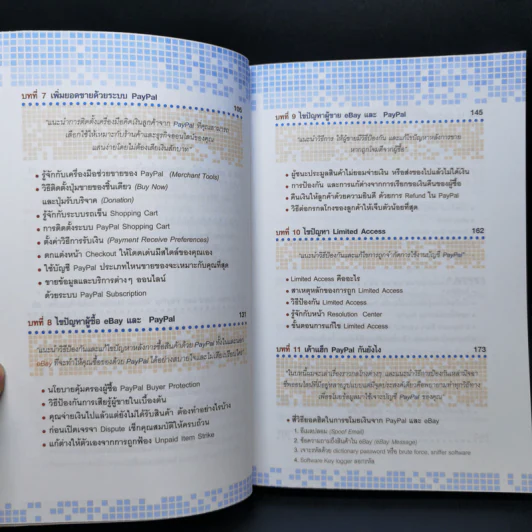 บทที่ 7 เพิ่มยอดขายด้วยระบบ PayPal 105
"แนะนำการติดตั้งเครื่องมือคิดเงินลูกค้าจาก PayPal ที่คุณสามารถ
เลือกใช้ให้เหมาะกับร้านค้าและธุรกิจออนไลน์ของคุณ
แสนง่ายดายโดยไม่ต้องเสียเงินสักบาท"
• รู้จักกับเครื่องมือช่วยขายของ PayPal (Merchant Tools)
• วิธีติดตั้งปุ่มขายของชิ้นเดียว (Buy Now)
และปุ่มรับบริจาค (Donation)
• รู้จักกับระบบรถเข็น Shopping Cart
• การติดตั้งระบบ PayPal Shopping Cart
• ตั้งค่าวิธีการรับเงิน (Payment Receive Preferences)
• ตกแต่งหน้า Checkout ให้โดดเด่นมีสไตล์ของคุณเอง
• ใช้บัญชี PayPal ประเภทไหนขายของจะเหมาะกับคุณที่สุด
• ขายข้อมูลและบริการต่างๆ ออนไลน์
ด้วยระบบ PayPal Subscription
บทที่ 8 ไขปัญหาผู้ซื้อ eBay และ PayPal 131
"แนะนำวิธีป้องกันและแก้ไขปัญหาหลังการซื้อสินค้าด้วย PayPal
eBay ที่จะทำให้คุณซื้อของด้วย PayPal ได้อย่างสบายใจและไม่เสียเปรียบใคร"
• นโยบายคุ้มครองผู้ซื้อ PayPal Buyer Protection
• วิธีป้องกันการเสียรู้ผู้ขายในเบื้องต้น
• คุณจ่ายเงินไปแล้วแต่ยังไม่ได้รับสินค้า ต้องทำอย่างไรบ้าง
• ก่อนเปิดเจรจา Dispute เช็กคุณสมบัติให้ครบถ้วน
• แก้ต่างให้ตัวเองจากการถูกฟ้อง Unpaid Item Strike
บทที่ 9 ไขปัญหาผู้ขาย eBay และ PayPal 145
"แนะนำวิธีการ ให้ผู้ขายมีวิธีป้องกัน และแก้ไขปัญหาหลังการขาย
หากถูกโจมตีจากผู้ซื้อ"
• ผู้ชนะประมูลสินค้าไม่ยอมจ่ายเงิน หรือส่งของไปแล้วไม่ได้เงิน
• การป้องกัน และการแก้ต่างจากการเรียกขอเงินคืนของผู้ซื้อ
• คืนเงินให้ลูกค้าด้วยความยินดี ด้วยการ Refund ใน PayPal
• วิธีต่อกรกลโกงของลูกค้าให้เจ็บตัวน้อยที่สุด
บทที่ 10 ไขปัญหา Limited Access 162
"แนะนำวิธีป้องกันและแก้ไขการถูกจำกัดการใช้งานบัญชี PayPal"
• Limited Access คืออะไร
• สาเหตุหลักของการถูก Limited Access
• วิธีป้องกัน Limited Access
• รู้จักกับหน้า Resolution Center
• ขั้นตอนการแก้ไข Limited Access
บทที่ 11 เค้าแฮ็ก PayPal กันยังไง 173
เพื่อขโมยข้อมูลมาใช้เจาะบัญชี PayPal ของคุณ"
• ที่วิธียอดฮิตในการขโมยเงินจาก PayPal และ eBay
1. อีเมลปลอม (Spoof Email)
2. ข้อความถามถึงสินค้าใน eBay (eBay Message)
3. เจาะรหัสด้วย dictionary password หรือ brute force, sniffer software
4. Software Key logger